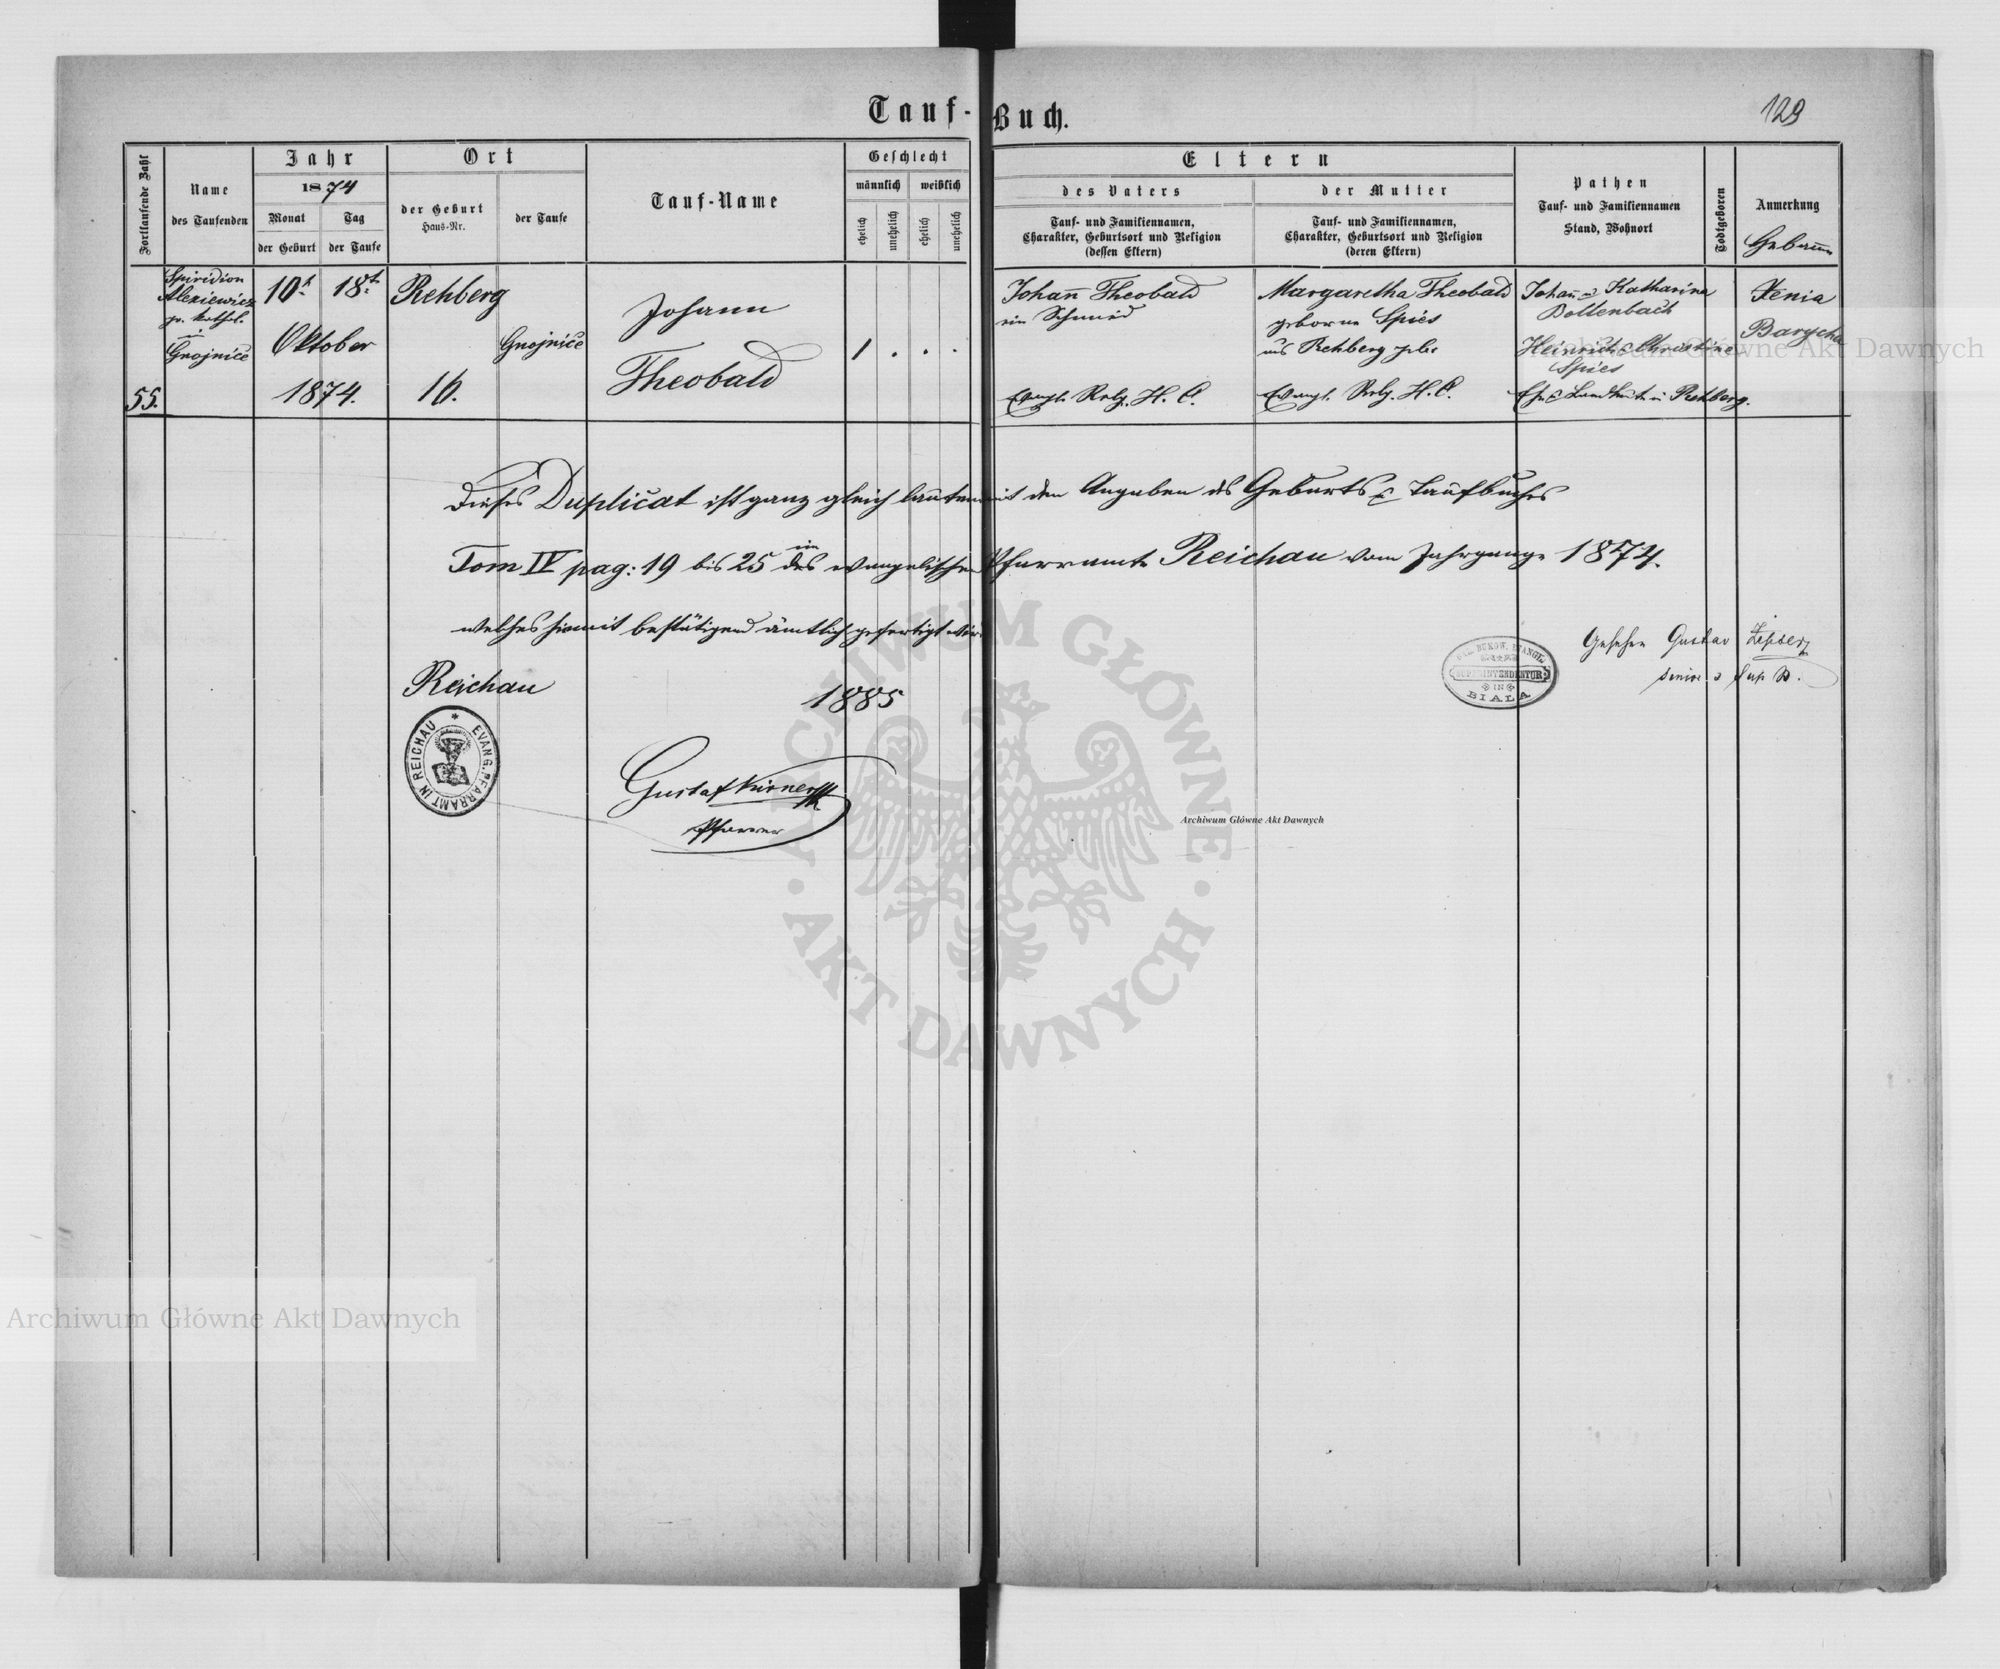 Tauf-Buch.
129
Fortlaufende Zahl
Name
des Taufenden
Jahr
1874
Monat
Tag
der Geburt
der Taufe
Ort
der Geburt
Haus-Nr.
der Taufe
Tauf-Name
Geschlecht
männlich
weiblich
ehelich
unehelich
ehelich
unehelich
Eltern
des Vaters
Tauf- und Familiennamen,
Charakter, Geburtsort und Religion
(dessen Eltern)
der Mutter
Tauf- und Familiennamen,
Charakter, Geburtsort und Religion
(deren Eltern)
Pathen
Tauf- und Familiennamen
Stand, Wohnort
Todtgeboren
Anmerkung
55.
Spiridion
Alexiewicz
gr. kathol.
in
Gnojnice
10t.
18t.
Oktober
1874.
Rehberg
16.
Gnojnice
Johann
Theobald
1 . . .
Johann Theobald
ein Schmied
Evangl. Relg. H. C.
Margaretha Theobald
geborne Spies
aus Rehberg
Evangl. Relg. H. C.
Johann & Katharina
Dollenbach
Heinrich & Christine
Spies
Rehberg.
Xenia
Barycha
Dieses Duplicat ist ganz gleich lautend mit den Angaben des Geburts & Taufbuches
Tom IV pag: 19 bis 25 im des evangelischen Pfarramte Reichau vom Jahrgange 1874.
welches hiemit bestätigend ämtlich gefertigt wird
Reichau
1885
EVANG. PFARRAMT IN REICHAU
Gustaf
Pfarrer
GAL. BUKOW. EVANGL.
SUPERINTENDENTUR
IN
BIALA
Gesehen Gustav
Senior
ARCHIWUM GŁÓWNE
AKT DAWNYCH
Archiwum Główne Akt Dawnych
Archiwum Główne Akt Dawnych
Archiwum Główne Akt Dawnych